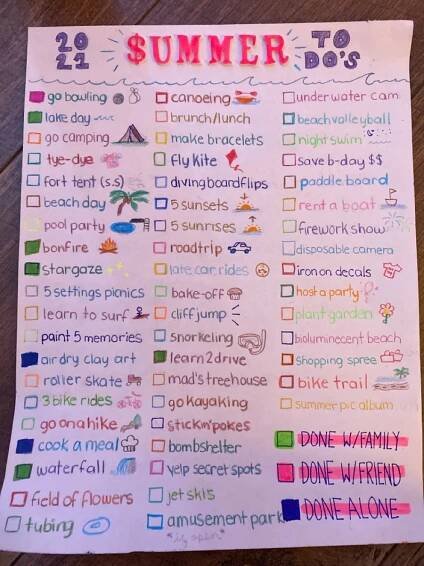 2021 SUMMER TO DO'S
go bowling
lake day
go camping
tye-dye
fort tent (s.s)
beach day
pool party
bonfire
stargaze
5 settings picnics
learn to surf
paint 5 memories
air dry clay art
roller skate
3 bike rides
go on a hike
cook a meal
waterfall
field of flowers
tubing
canoeing
brunch/lunch
make bracelets
fly kite
diving board flips
5 sunsets
5 sunrises
roadtrip
late car rides
bake-off
cliff jump
snorkeling
learn 2 drive
mad's treehouse
go kayaking
stickin'pokes
bombshelter
yelp secret spots
jet skis
amusement park
underwater cam
beach volleyball
night swim
save b-day $$
paddle board
rent a boat
firework show
disposable camera
iron on decals
host a party
plant garden
bioluminecent beach
shopping spree
bike trail
summer pic album
DONE W/FAMILY
DONE W/FRIEND
DONE ALONE